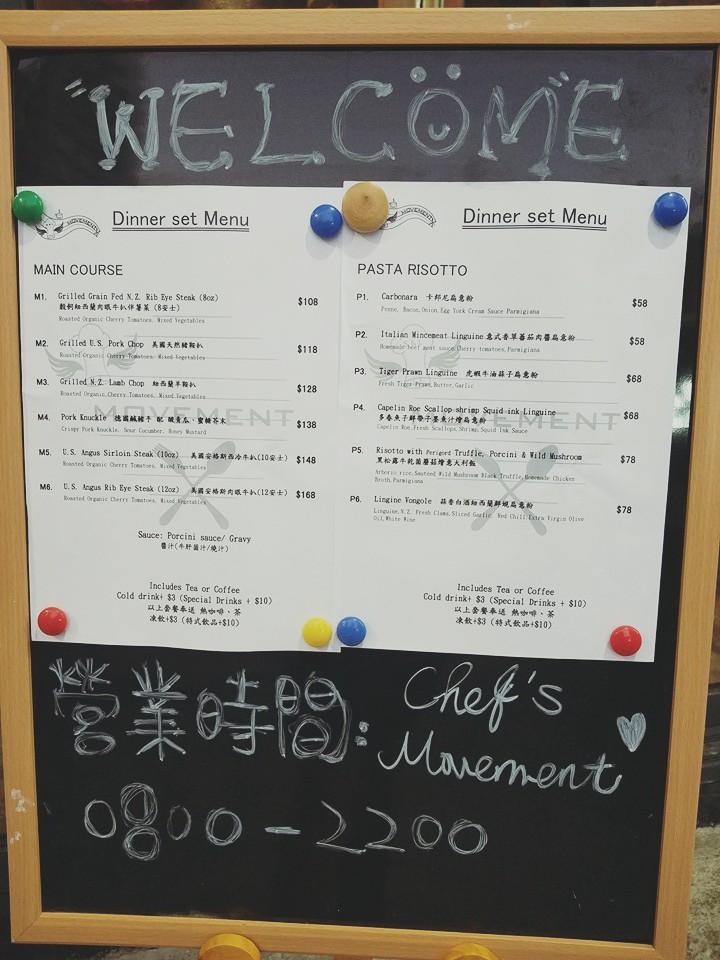 "WELCOME"
MOVEMENT
Dinner set Menu
MAIN COURSE
M1. Grilled Grain Fed N.Z. Rib Eye Steak (8oz) $108
穀飼紐西蘭肉眼牛扒伴薯菜 (8安士)
Roasted Organic Cherry Tomatoes, Mixed Vegetables
M2. Grilled U.S. Pork Chop 美國天然豬鞍扒 $118
Roasted Organic Cherry Tomatoes, Mixed Vegetables
M3. Grilled N.Z. Lamb Chop 紐西蘭羊鞍扒 $128
Roasted Organic Cherry Tomatoes, Mixed Vegetables
M4. Pork Knuckle 德國鹹豬手 配 酸青瓜、蜜糖芥末 $138
Crispy Pork Knuckle, Sour Cucumber, Honey Mustard
M5. U.S. Angus Sirloin Steak (10oz) 美國安格斯西冷牛扒(10安士) $148
Roasted Organic Cherry Tomatoes, Mixed Vegetables
M6. U.S. Angus Rib Eye Steak (12oz) 美國安格斯肉眼牛扒(12安士) $168
Roasted Organic Cherry Tomatoes, Mixed Vegetables
MOVEMENT
Sauce: Porcini sauce/ Gravy
醬汁(牛肝菌汁/燒汁)
Includes Tea or Coffee
Cold drink+ $3 (Special Drinks + $10)
以上套餐奉送 熱咖啡、茶
凍飲+$3 (特式飲品+$10)
MOVEMENT
Dinner set Menu
PASTA RISOTTO
P1. Carbonara 卡邦尼扁意粉 $58
Penne, Bacon,Onion,Egg York Cream Sauce Parmigiana
P2. Italian Mincemeat Linguine 意式香草蕃茄肉醬扁意粉 $58
Homemade beef meat sauce,Cherry tomatoes,Parmigiana
P3. Tiger Prawn Linguine 虎蝦牛油蒜子扁意粉 $68
Fresh Tiger Prawn,Butter,Garlic
P4. Capelin Roe Scallop shrimp Squid ink Linguine $68
多春魚子鮮帶子墨魚汁燴扁意粉
Capelin Roe,Fresh Scallops,Shrimp,Squid Ink Sauce
P5. Risotto with Perigord Truffle, Porcini & Wild Mushroom $78
黑松露牛肝菌蘑菇燴意大利飯
Arborio rice,Sauteed Wild Mushroom Black Truffle,Homemade Chicken
Broth,Parmigiana
P6. Lingine Vongole 蒜香白酒紐西蘭鮮蜆扁意粉 $78
Linguine,N.Z. Fresh Clams,Sliced Garlic, Red Chili,Extra Virgin Olive
Oil,White Wine
MOVEMENT
Includes Tea or Coffee
Cold drink+ $3 (Special Drinks + $10)
以上套餐奉送 熱咖啡、茶
凍飲+$3 (特式飲品+$10)
營業時間:
0800-2200
Chef's
Movement